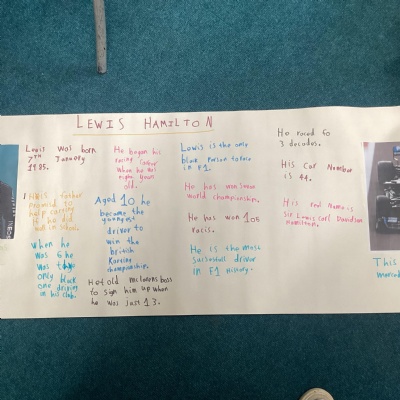 LEWIS HAMILTON
Lewis was born
7TH January
1985.
His father
promised to
help carring
if he did
well in school.
when he
was 6 he
was the
only black
one driving
in his club.
He began his
racing
when he was
eight years
old.
Aged 10 he
became the
youngest
driver to
win the
british
Karting
championship.
He told mclarens boss
to sign him up when
he was just 13.
Lewis is the only
black person to race
in F1
He has won seven
world championship.
He has won 105
racis.
He is the most
sucsesfull driver
in F1 history.
He raced fo
3 decades.
His Car Number
is 44.
His real Name is
Sir Lewis Carl Davidson
Hamilton.
This